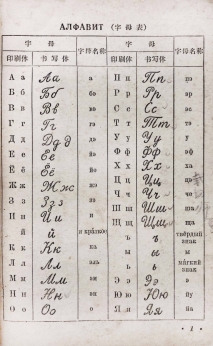 АЛФАВИТ (字母表)
字 母 字母名称 字 母 字母名称
印刷体 书写体 印刷体 书写体
А а Аа а П п Пп пэ
Б б Бб бэ Р р Рр эр
В в Вв вэ С с Сс эс
Г г Гг гэ Т т Тт тэ
Д д Дд д дэ У у Уу у
Е е Ее е Ф ф Фф эф
Ё ё Ёё ё Х х Хх ха
Ж ж Жж жэ Ц ц Цц цэ
З з Зз з зэ Ч ч Чч че
И и Ии и Ш ш Шш ша
й й и краткое Щ щ Щщ ща
К к Кк ка ъ ъ твёрдый знак
Л л Лл эль ы ы ы
М м Мм эм ь ь мягкий знак
Н н Нн эн Э э Ээ э
О о Оо о Ю ю Юю йу
Я я Яя йа
· 1 ·